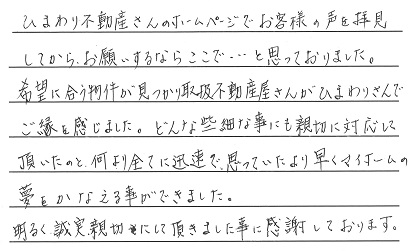 ひまわり不動産さんのホームページでお客様の声を拝見
してから、お願いするならここで…と思っておりました。
希望に合う物件が見つかり取扱不動産屋さんがひまわりさんで
ご縁を感じました。どんな些細な事にも親切に対応して
頂いたのと、何より全てに迅速で、思っていたより早くマイホームの
夢をかなえる事ができました。
明るく誠実親切にして頂きました事に感謝しております。